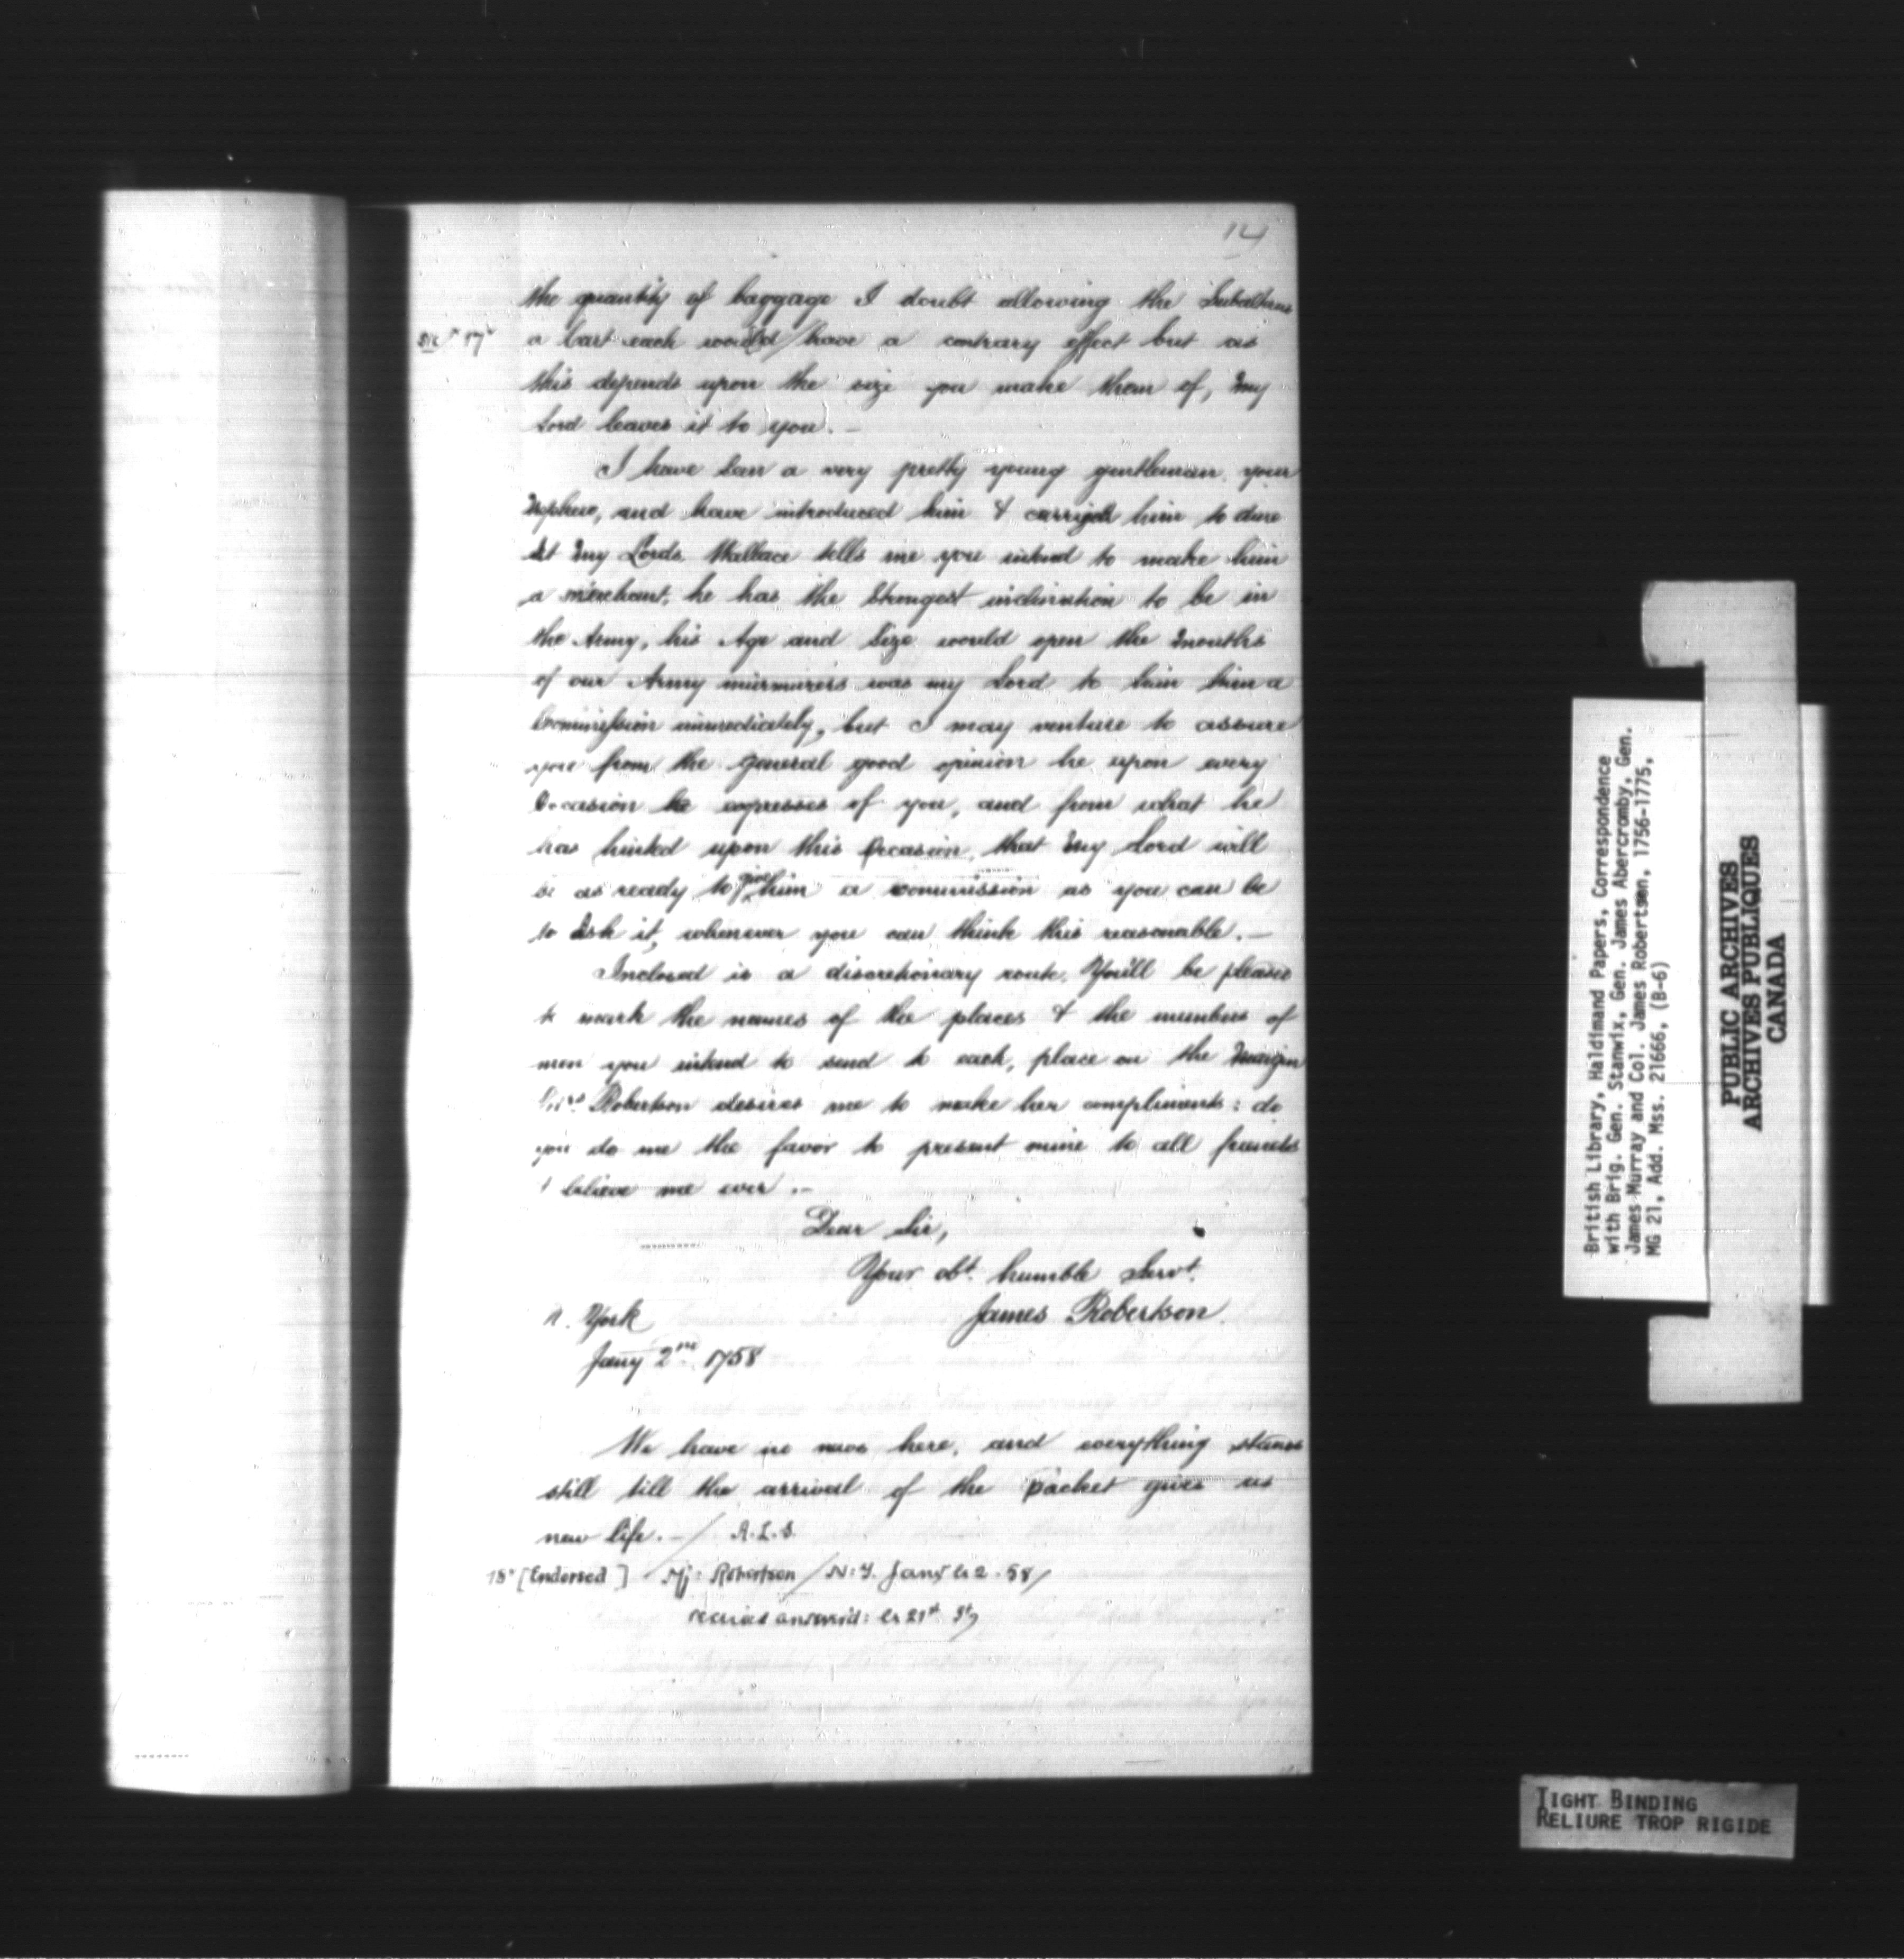 14
the quantity of baggage I doubt allowing the Subalterns
a Cart each would / have a contrary effect but as
this depends upon the size you make them of, My
Lord leaves it to you. —
I have seen a very pretty young gentleman your
Nephew, and have introduced him & carried him to dine
At My Lords Wallace tells me you intend to make him
a merchant, he has the Strongest inclination to be in
the Army, his Age and Size would open the Mouths
of our Army murmurers was my Lord to him a
Commission immediately, but I may venture to assure
you from the general good opinion he upon every
Occasion he expresses of you, and from what he
has hinted upon this Occasion, that My Lord will
be as ready to give him a commission as you can be
to Ask it, whenever you can think this reasonable. —
Inclosed is a discretionary route. You'll be pleased
to mark the names of the places & the numbers of
men you intend to send to each, place on the Margin
Mrs Robertson desires me to make her compliments: do
you do me the favor to present mine to all friends
& believe me ever. —
Dear Sir,
Your obt. humble Servt.
James Robertson
N. York
Jany 2nd. 1758
We have no news here, and everything stands
still till the arrival of the packet gives us
new life. — / A.L.S.
[Endorsed] Mj: Robertson / N:Y. Jany le 2. 58 /
answerd: le 21st
British Library, Haldimand Papers, Correspondence
with Brig. Gen. Stanwix, Gen. James Abercromby, Gen.
James Murray and Col. James Robertson, 1756-1775,
MG 21, Add. Mss. 21666, (B-6)
PUBLIC ARCHIVES
ARCHIVES PUBLIQUES
CANADA
TIGHT BINDING
RELIURE TROP RIGIDE